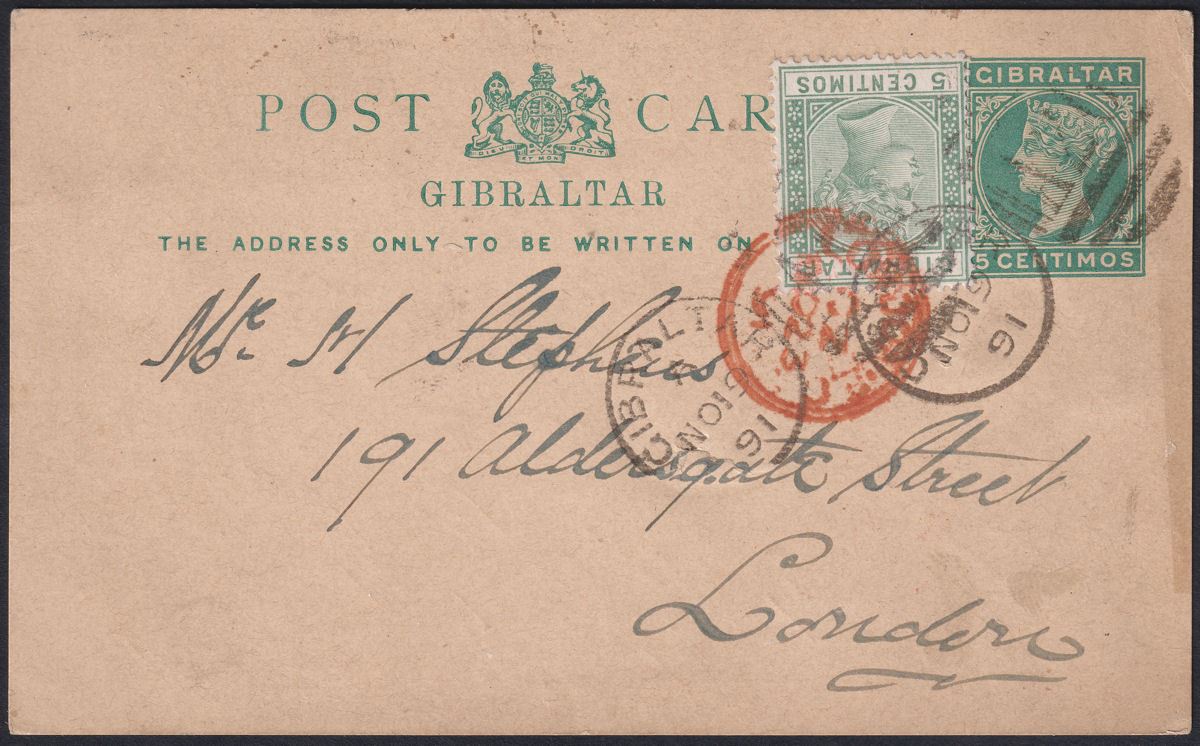 POST CAR
DIEU ET MON DROIT
GIBRALTAR
THE ADDRESS ONLY TO BE WRITTEN ON
5 CENTIMOS
GIBRALTAR
5 CENTIMOS
Mr. H Stephens
191 Aldersgate Street
London
GIBRALTAR
A
NO 19
91
NO 19
91